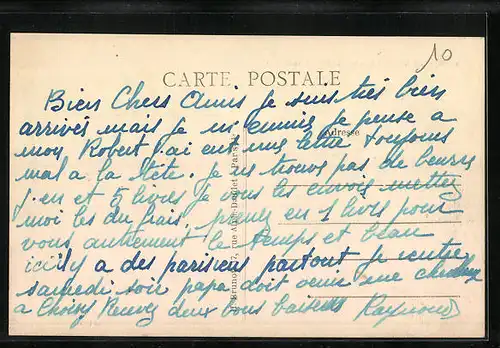 10
CARTE POSTALE
Bien Chers Amis je suis très bien
arrivés mais je m ennuie je pense a
Adresse
mon Robert j ai eu une lettre toujours
mal a la tête. je ne trouve pas de beurre
j en et 5 livres je vous les envoie mettez
moi les du frais, prenez en 1 livre pour
vous, autrement le temps et beau
ici il y a des parisiens partout je rentre
samedi soir papa doit venir me chercher
a Choisy Recevez deux bons baisers Raymond